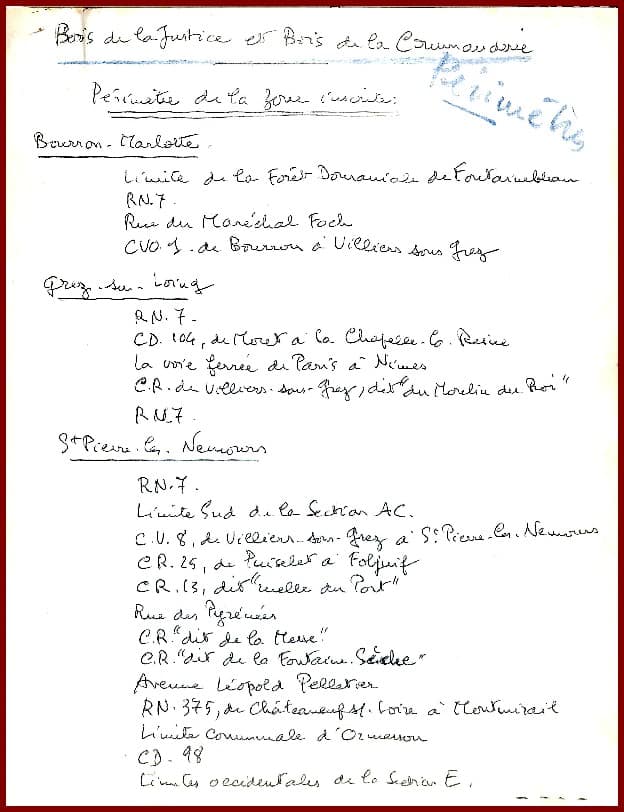 Bois de la Justice et Bois de la Commanderie
Périmètre
Périmètre de la zone inscrite:
Bourron-Marlotte.
Limite de la Forêt Domaniale de Fontainebleau
RN.7.
Rue du Maréchal Foch
CVO.1. de Bourron à Villiers sous Grez
Grez-sur-Loing
RN.7-
CD.104, de Moret à la Chapelle-la-Reine
la voie ferrée de Paris à Nîmes
C.R. de Villiers-sous-Grez, dit "du Moulin du Roi"
RN.7.
St Pierre-les-Nemours
RN.7.
Limite Sud de la Section AC.
C.V.8, de Villiers-sous-Grez à St Pierre-les-Nemours
CR.25, de Puiselet à Foljuif
CR.13, dit "ruelle du Port"
Rue des Pyrénées
C.R. "dit de la Messe"
C.R. "dit de la Fontaine Sèche"
Avenue Léopold Pelletier
RN.375, de Châteauneuf s/. Loire à Montmirail
Limite Communale d'Ormesson
CD-98
Limites occidentales de la Section E.